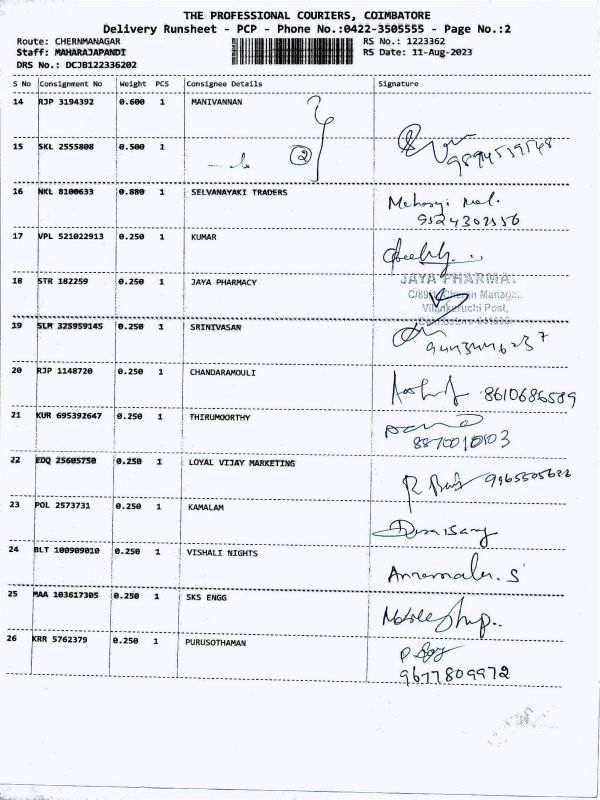 THE PROFESSIONAL COURIERS, COIMBATORE
Delivery Runsheet - PCP - Phone No.:0422-3505555 - Page No.:2
Route: CHERNMANAGAR RS No.: 1223362
Staff: MAHARAJAPANDI RS Date: 11-Aug-2023
DRS No.: DCJB122336202
S No Consignment No Weight PCS Consignee Details Signature
14 RJP 3194392 0.600 1 MANIVANNAN
15 SKL 2555808 0.500 1 2
16 NKL 8100633 0.880 1 SELVANAYAKI TRADERS
9524302556
17 VPL 521022913 0.250 1 KUMAR
18 STR 182259 0.250 1 JAYA PHARMACY
JAYA PHARMA
19 SLM 325959145 0.250 1 SRINIVASAN
20 RJP 1148720 0.250 1 CHANDARAMOULI
8610686589
21 KUR 695392647 0.250 1 THIRUMOORTHY
22 EDQ 25605750 0.250 1 LOYAL VIJAY MARKETING
23 POL 2573731 0.250 1 KAMALAM
24 BLT 100909010 0.250 1 VISHALI NIGHTS
Annamalai. S
25 MAA 103617305 0.250 1 SKS ENGG
26 KRR 5762379 0.250 1 PURUSOTHAMAN
9677809972